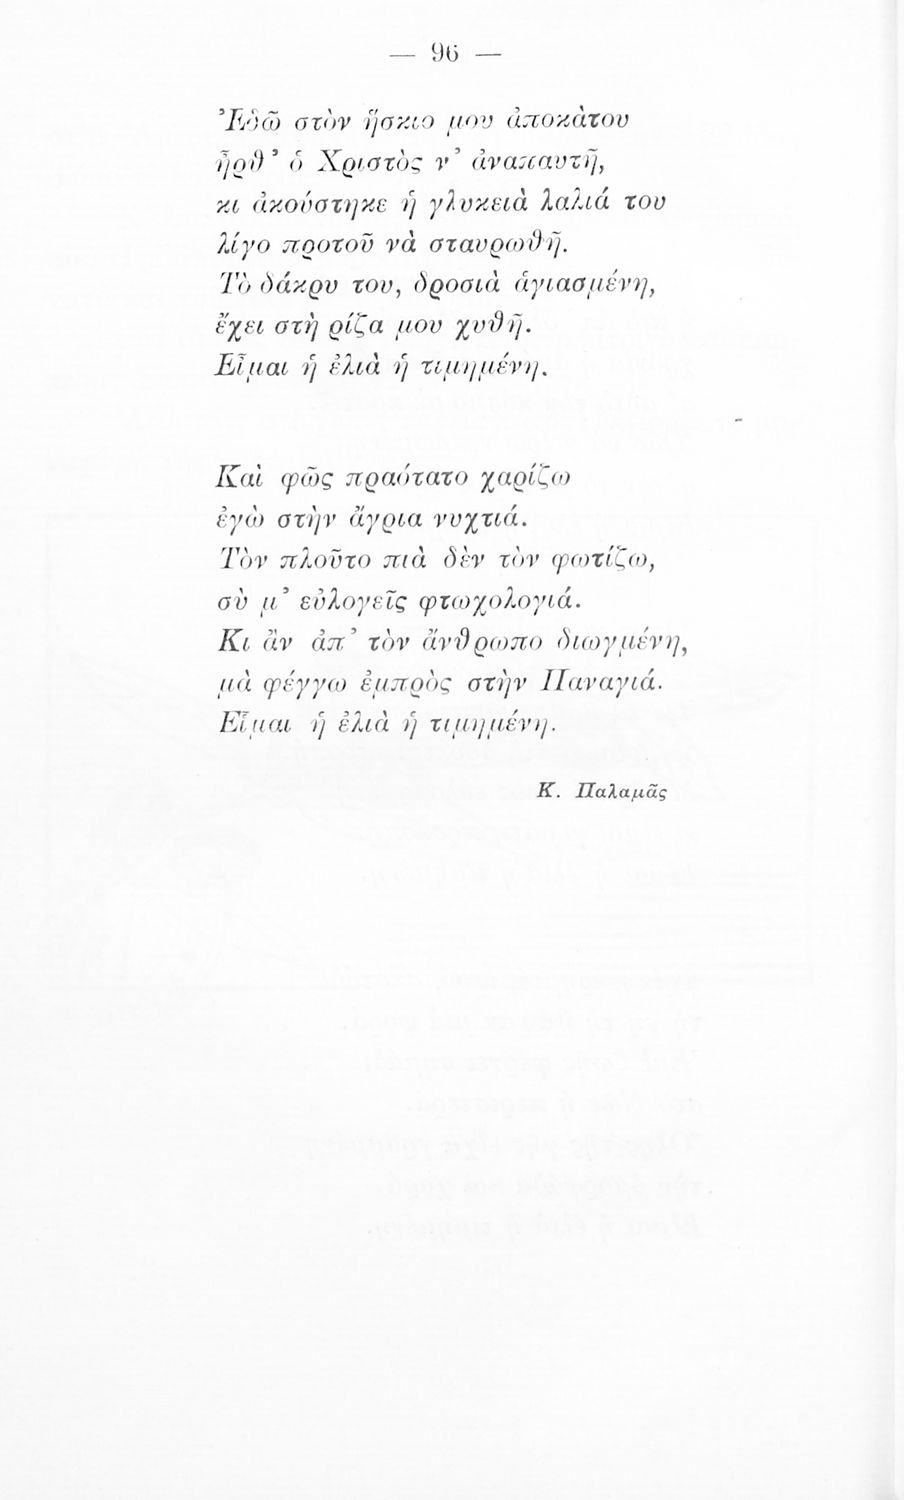 — 96 —
Ἐδῶ στὸν ἥσκιο μου ἀποκάτου
ἦρθ᾿ ὁ Χριστὸς ν᾿ ἀναπαυτῆ,
κι ἀκούστηκε ἡ γλυκειὰ λαλιά του
λίγο προτοῦ νὰ σταυρωθῆ.
Τὸ δάκρυ του, δροσιὰ ἁγιασμένη,
ἔχει στὴ ρίζα μου χυθῆ.
Εἶμαι ἡ ἐλιὰ ἡ τιμημένη.
Καὶ φῶς πραότατο χαρίζω
ἐγὼ στὴν ἄγρια νυχτιά.
Τὸν πλοῦτο πιὰ δὲν τὸν φωτίζω,
σὺ μ᾿ εὐλογεῖς φτωχολογιά.
Κι ἂν ἀπ᾿ τὸν ἄνθρωπο διωγμένη,
μὰ φέγγω ἐμπρὸς στὴν Παναγιά.
Εἶμαι ἡ ἐλιὰ ἡ τιμημένη.
Κ. Παλαμᾶς